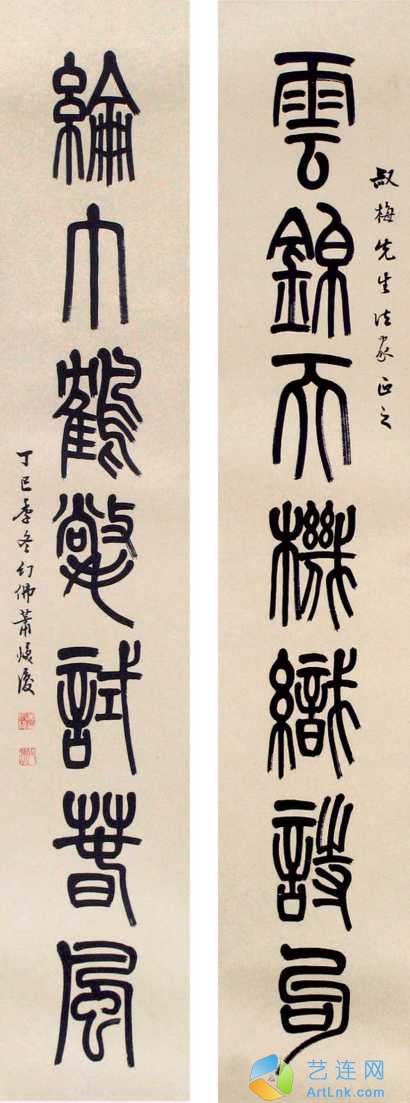 雲錦天機織詩句
叔梅先生法家正之
綸巾鶴氅試春風
丁巳季冬幻佛蕭
艺连网
ArtLnk.com